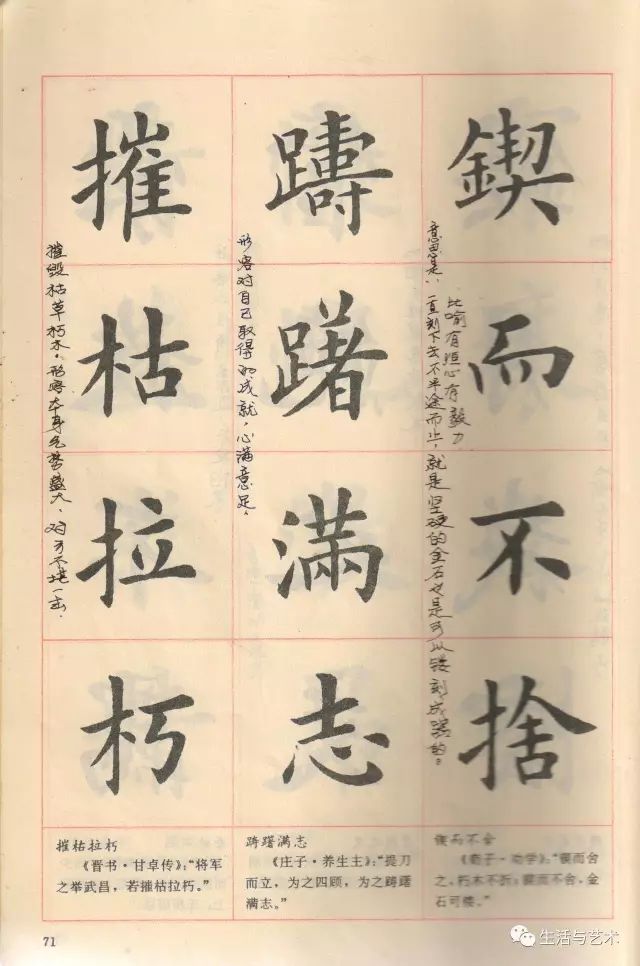 鍥而不捨
意思是,一直刻下去不半途而止,就是坚硬的金石也是可以镂刻成器的。
比喻有恒心有毅力
躊躇滿志
形容对自己取得的成就,心满意足。
摧枯拉朽
摧毁枯草朽木。形容本身气势盛大,对方不堪一击。
锲而不舍
《荀子·劝学》:“锲而舍
之,朽木不折;锲而不舍,金
石可镂。”
踌躇满志
《庄子·养生主》:“提刀
而立,为之四顾,为之踌躇
满志。”
摧枯拉朽
《晋书·甘卓传》:“将军
之举武昌,若摧枯拉朽。”
71
生活与艺术